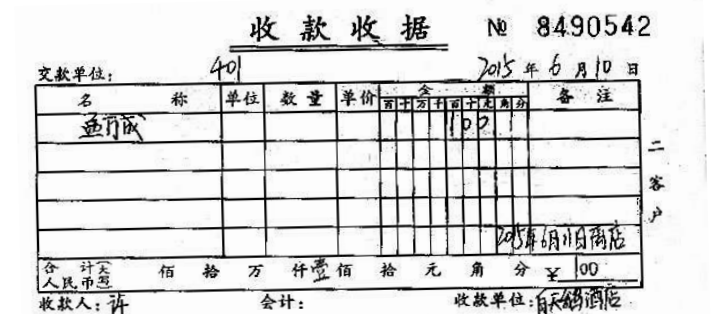 收款收据 № 8490542
交款单位: 401 2015年6月10日
名称 单位 数量 单价 金额 备注
百十万千百十元角分
100
2015年6月11日离店
合计(大写)人民币 佰 拾 万 仟 壹佰 拾 元 角 分 ¥ 100
收款人: 许 会计: 收款单位: 白天鹅酒店
二客户